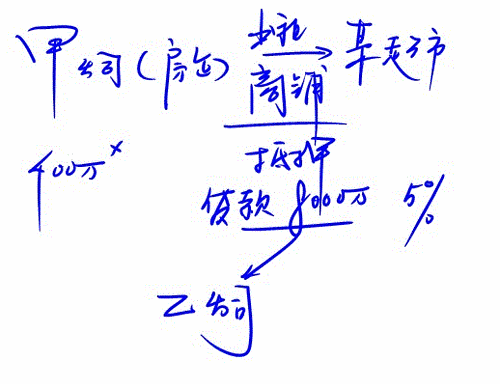 甲公司(房企) 出租 某超市
商铺
400万 ×
抵押
贷款 8000万 5%
乙公司